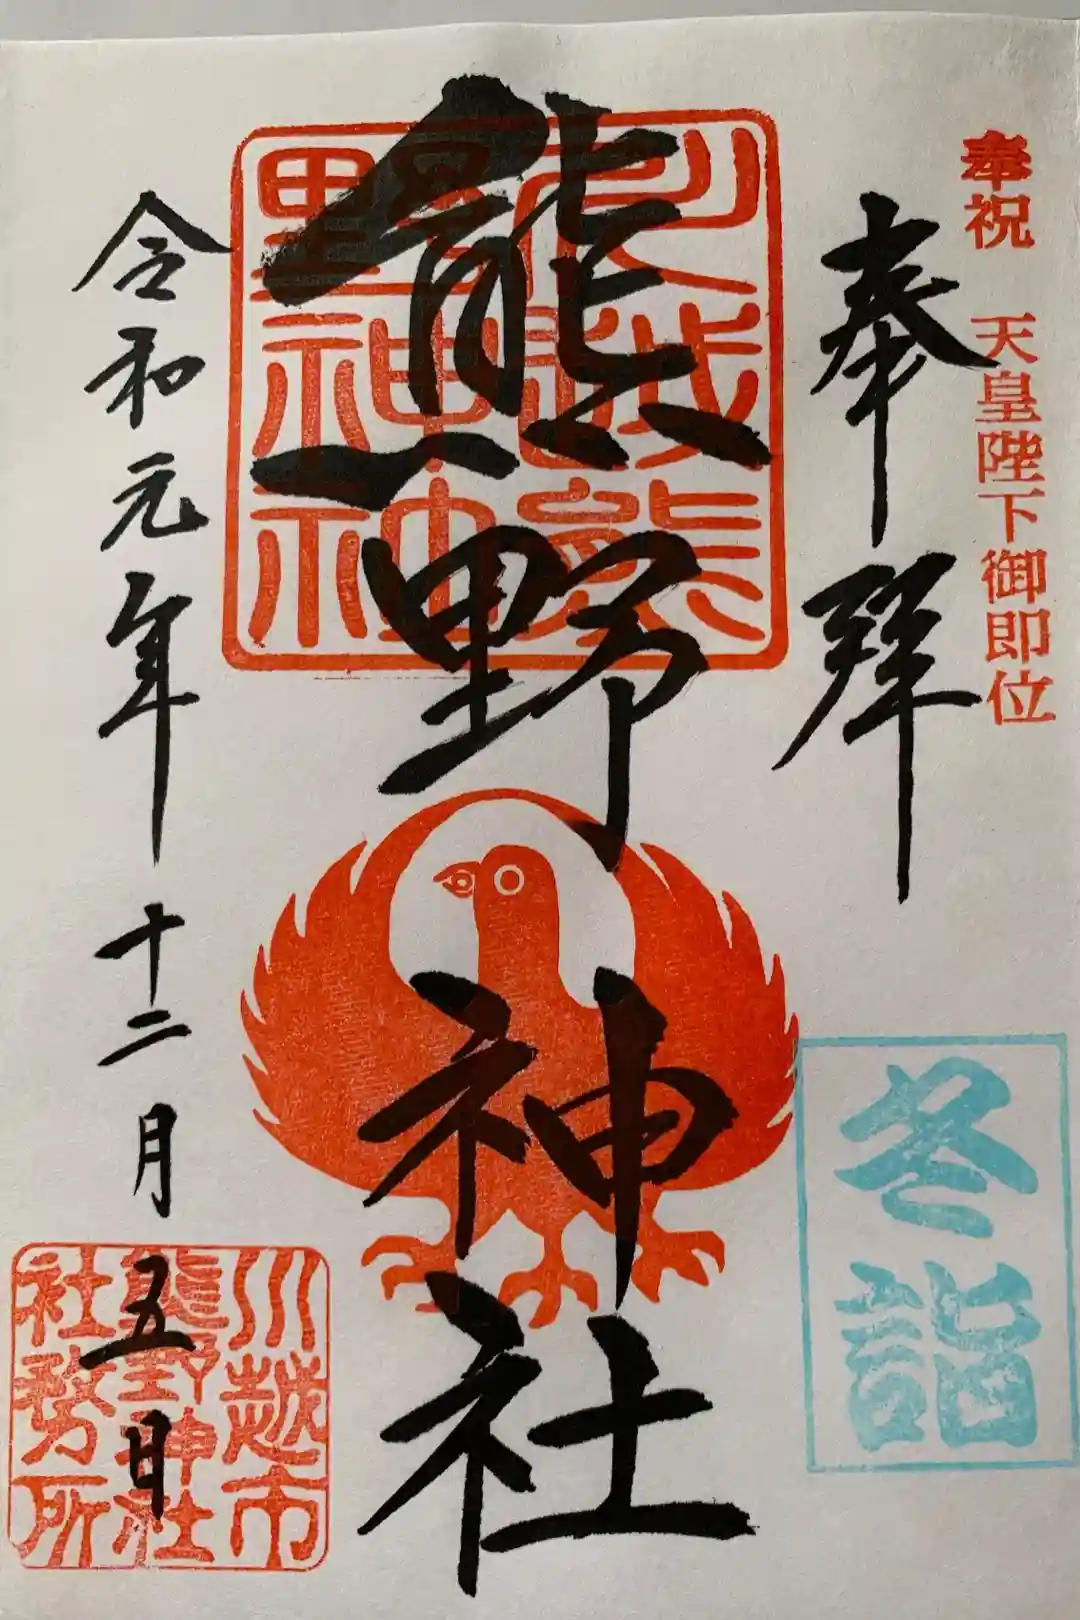 奉祝 天皇陛下御即位
奉拝
冬詣
熊野神社
川越熊
野神社
令和元年十二月五日
川越市
熊野神社
社務所